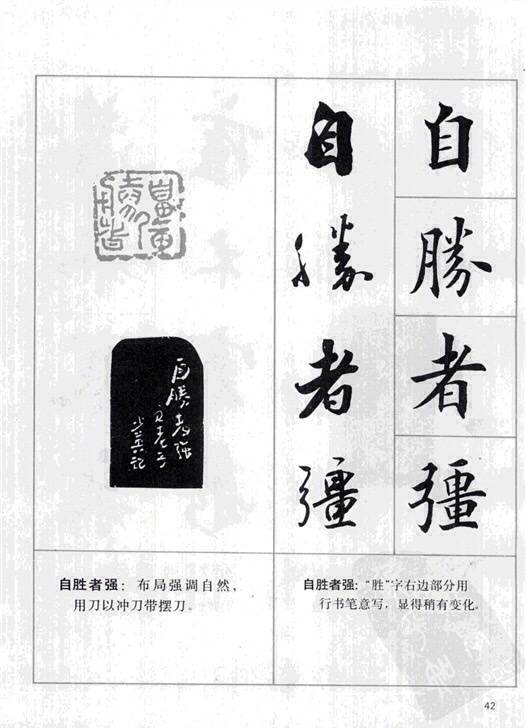 自
勝
者
彊
自
勝
者
彊
自勝者强
自胜者强：布局强调自然，
用刀以冲刀带摆刀。
自胜者强：“胜”字右边部分用
行书笔意写，显得稍有变化。
42